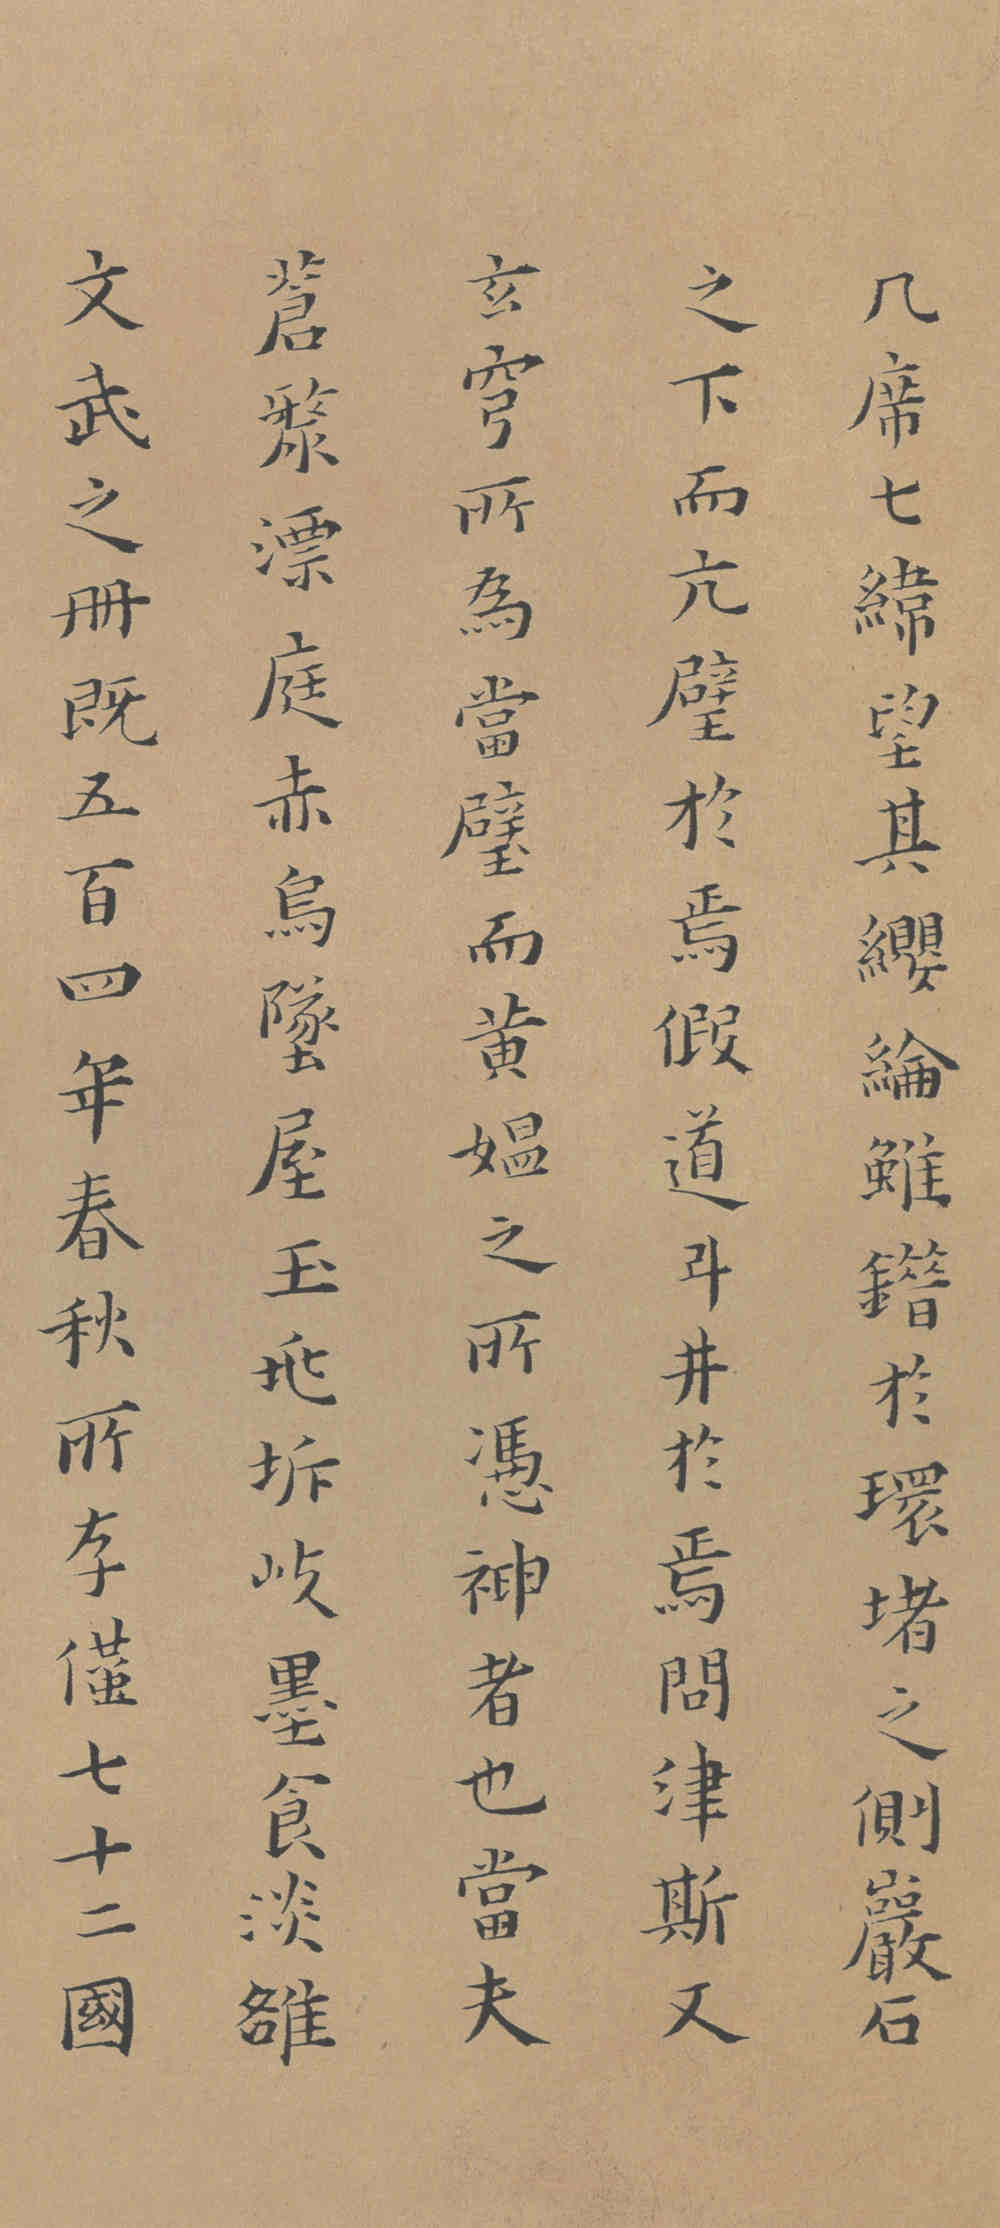 几席七緯望其纓綸雖鐕於環堵之側巖石
之下而亢壁於焉假道斗井於焉問津斯又
玄穹所為當璧而黃媼之所憑神者也當夫
蒼漦漂庭赤烏墜屋玉地坼岐墨食淡雒
文武之冊既五百四年春秋所存僅七十二國